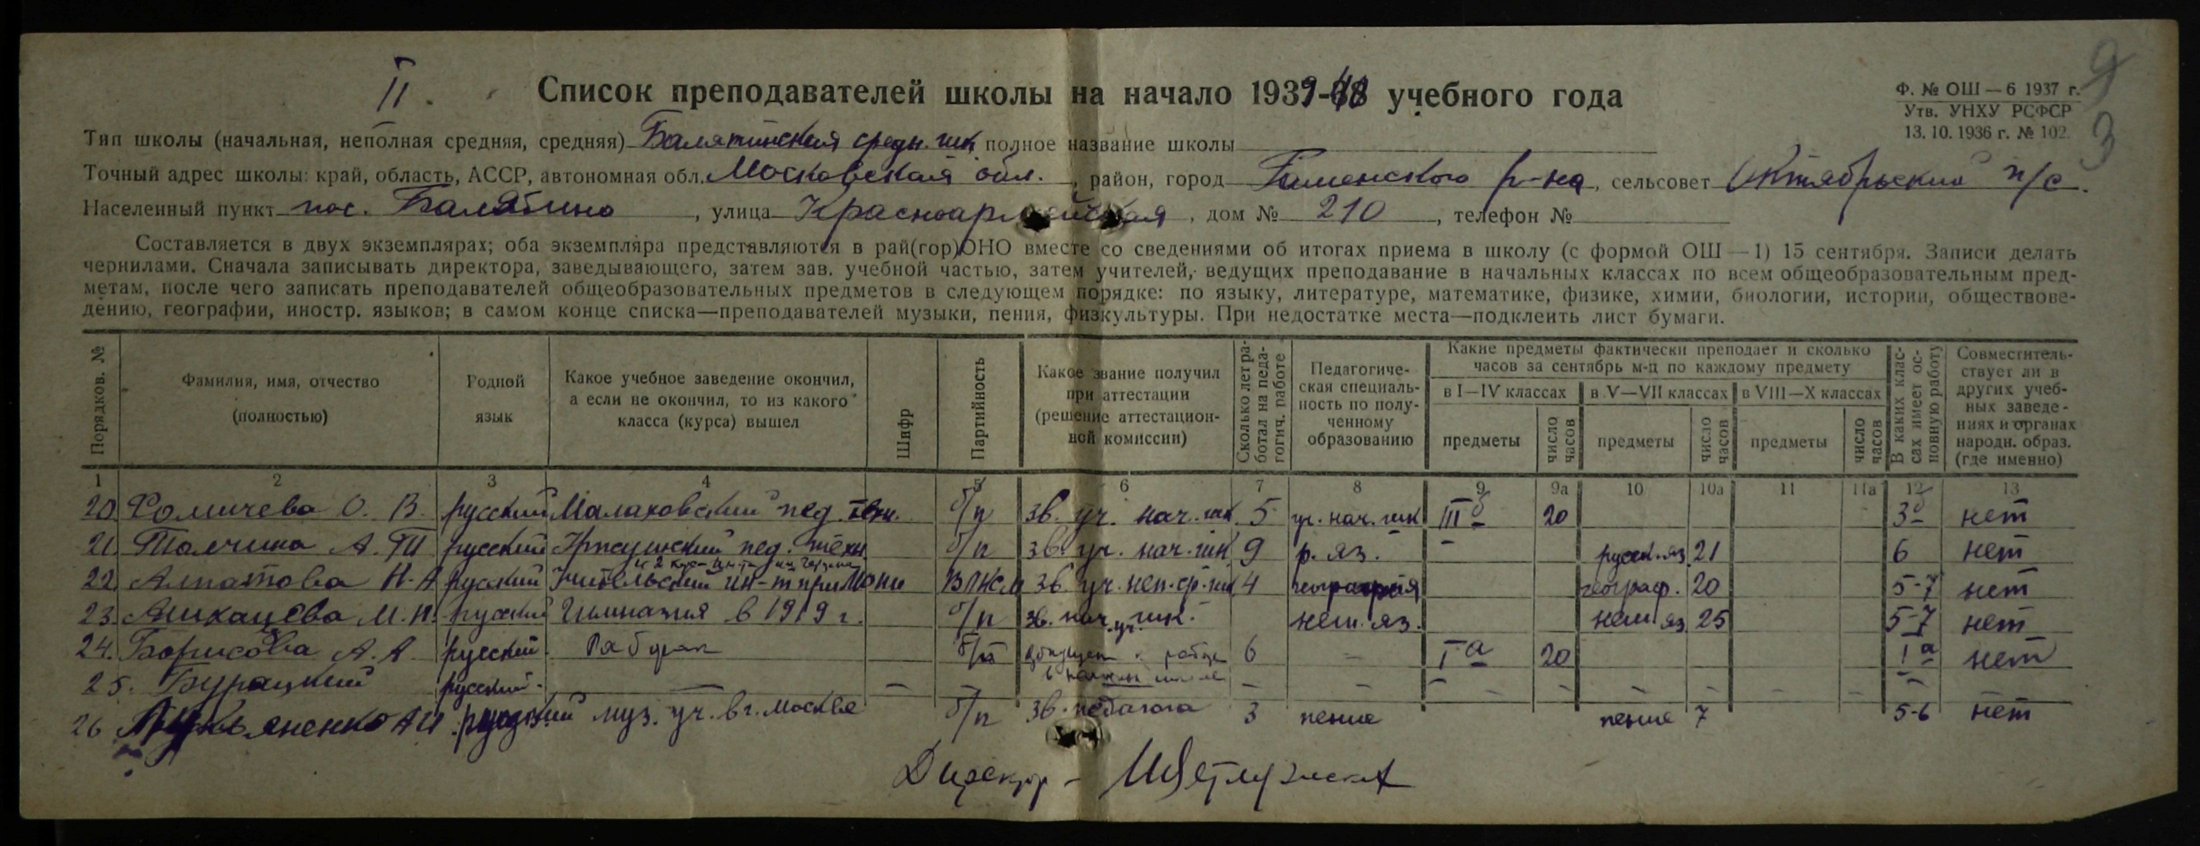 II.
Список преподавателей школы на начало 1939-40 учебного года
9
3
Ф. № ОШ — 6 1937 г.
Утв. УНХУ РСФСР
13. 10. 1936 г. № 102.
Тип школы (начальная, неполная средняя, средняя) Балятинская средн. шк. полное название школы
Точный адрес школы: край, область, АССР, автономная обл. Московская обл., район, город Раменского р-на, сельсовет Октябрьский п/с.
Населенный пункт пос. Балятино, улица Красноармейская, дом № 210, телефон №
Составляется в двух экземплярах; оба экземпляра представляются в рай(гор)ОНО вместе со сведениями об итогах приема в школу (с формой ОШ — 1) 15 сентября. Записи делать
чернилами. Сначала записывать директора, заведывающего, затем зав. учебной частью, затем учителей, ведущих преподавание в начальных классах по всем общеобразовательным пред-
метам, после чего записать преподавателей общеобразовательных предметов в следующем порядке: по языку, литературе, математике, физике, химии, биологии, истории, обществове-
дению, географии, иностр. языков; в самом конце списка—преподавателей музыки, пения, физкультуры. При недостатке места—подклеить лист бумаги.
Порядков. №
Фамилия, имя, отчество
(полностью)
Родной
язык
Какое учебное заведение окончил,
а если не окончил, то из какого
класса (курса) вышел
Шифр
Партийность
Какое звание получил
при аттестации
(решение аттестацион-
ной комиссии)
Сколько лет ра-
ботал на педа-
гогич. работе
Педагогиче-
ская специаль-
ность по полу-
ченному
образованию
Какие предметы фактически преподает и сколько
часов за сентябрь м-ц по каждому предмету
в I—IV классах
в V—VII классах
в VIII—X классах
предметы
число
часов
предметы
число
часов
предметы
число
часов
В каких клас-
сах имеет ос-
новную работу
Совместитель-
ствует ли в
других учеб-
ных заведе-
ниях и органах
народн. образ.
(где именно)
1 2 3 4 5 6 7 8 9 9а 10 10а 11 11а 12 13
20. Фомичева О. В. русский Малаховский пед. техн. б/п зв. уч. нач. шк 5 уч. нач. шк III б 20 3 б нет
21. А. русский пед. техн б/п зв. уч. нач. шк 9 р. яз. русск. яз 21 6 нет
22. Алпатова Н. А русский ин-т ВЛКСМ зв. уч. неп. ср. шк 4 география географ. 20 5-7 нет
23. М. Н. русский Гимназия в 1919 г. б/п зв. нач. уч. шк. нем. яз. нем яз. 25 5-7 нет
24. Борисова А. А русский Рабфак б/п 6 I а 20 I а нет
25. русский
26 А И русский муз. уч. в г. Москве б/п зв. педагога 3 пение пение 7 5-6 нет
Директор –